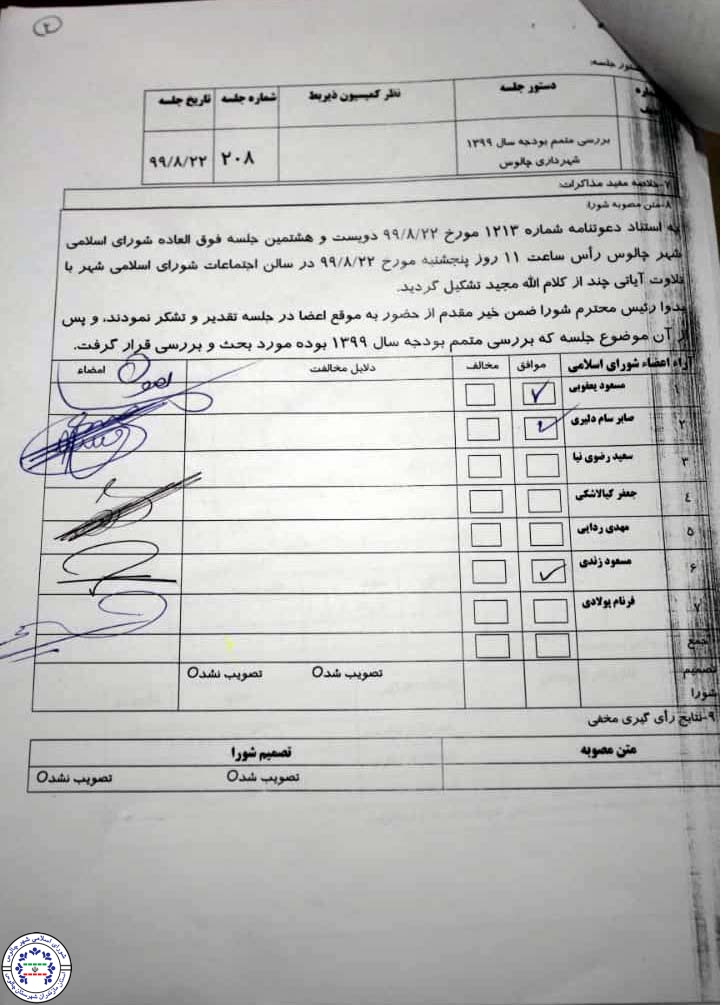 ۲
دستور جلسه:
دستور جلسه
نظر کمیسیون ذیربط
شماره جلسه
تاریخ جلسه
بررسی متمم بودجه سال ۱۳۹۹
شهرداری چالوس
۲۰۸
۹۹/۸/۲۲
۷-خلاصه مفید مذاکرات:
۸-متن مصوبه شورا:
به استناد دعوتنامه شماره ۱۲۱۳ مورخ ۹۹/۸/۲۲ دویست و هشتمین جلسه فوق العاده شورای اسلامی
شهر چالوس رأس ساعت ۱۱ روز پنجشنبه مورخ ۹۹/۸/۲۲ در سالن اجتماعات شورای اسلامی شهر با
تلاوت آیاتی چند از کلام الله مجید تشکیل گردید.
بدوا رئیس محترم شورا ضمن خیر مقدم از حضور به موقع اعضا در جلسه تقدیر و تشکر نمودند، و پس
از آن موضوع جلسه که بررسی متمم بودجه سال ۱۳۹۹ بوده مورد بحث و بررسی قرار گرفت.
آراء اعضاء شورای اسلامی
موافق
مخالف
دلایل مخالفت
امضاء
۱
مسعود یعقوبی
۲
صابر سام دلیری
۳
سعید رضوی نیا
۴
جعفر کیالاشکی
۵
مهدی ردایی
۶
مسعود زندی
۷
فرنام پولادی
جمع
تصمیم
شورا
تصویب شد
تصویب نشد
۹-نتایج رأی گیری مخفی
متن مصوبه
تصمیم شورا
تصویب شد
تصویب نشد
شورای اسلامی شهر چالوس
استان مازندران شهرستان چالوس